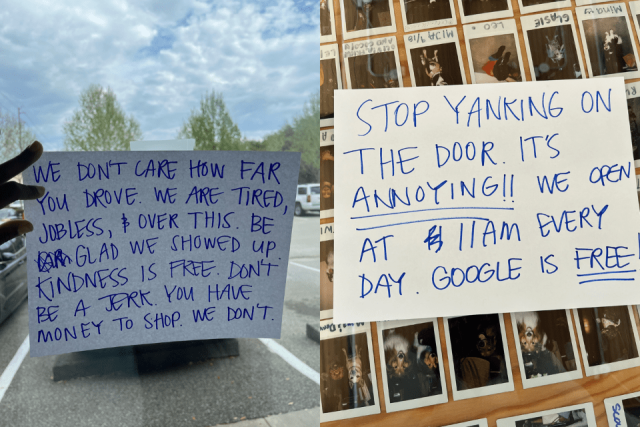 WE DON'T CARE HOW FAR
YOU DROVE. WE ARE TIRED,
JOBLESS, & OVER THIS. BE
GLAD WE SHOWED UP.
KINDNESS IS FREE. DON'T
BE A JERK. YOU HAVE
MONEY TO SHOP. WE DON'T.
STOP YANKING ON
THE DOOR. IT'S
ANNOYING!! WE OPEN
AT 11AM EVERY
DAY. GOOGLE IS FREE!
LEO
GLASIE
MIJA 9/18